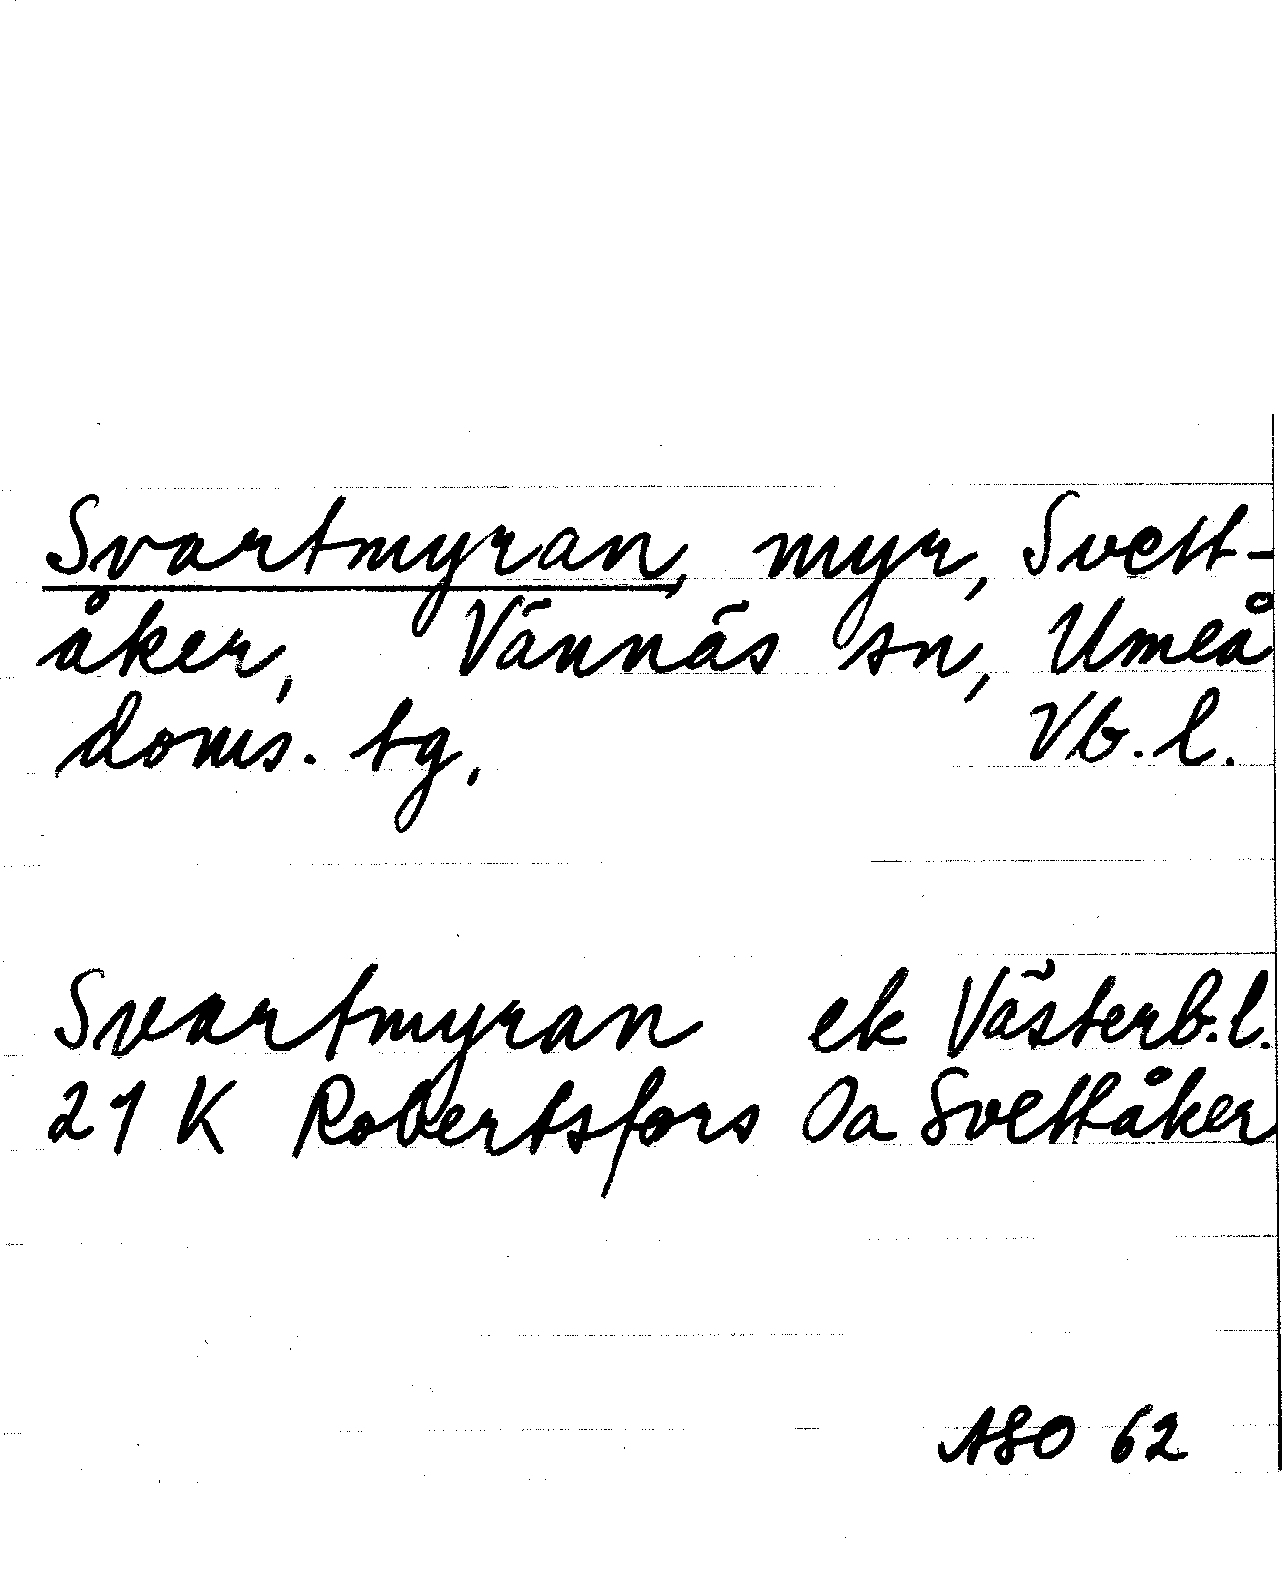 Svartmyran, myr, Svett-
åker, Vännäs sn, Umeå
doms. tg. Vb. l.
Svartmyran ek Västerb.l.
21 K Robertsfors Oa Svettåker
ASO 62